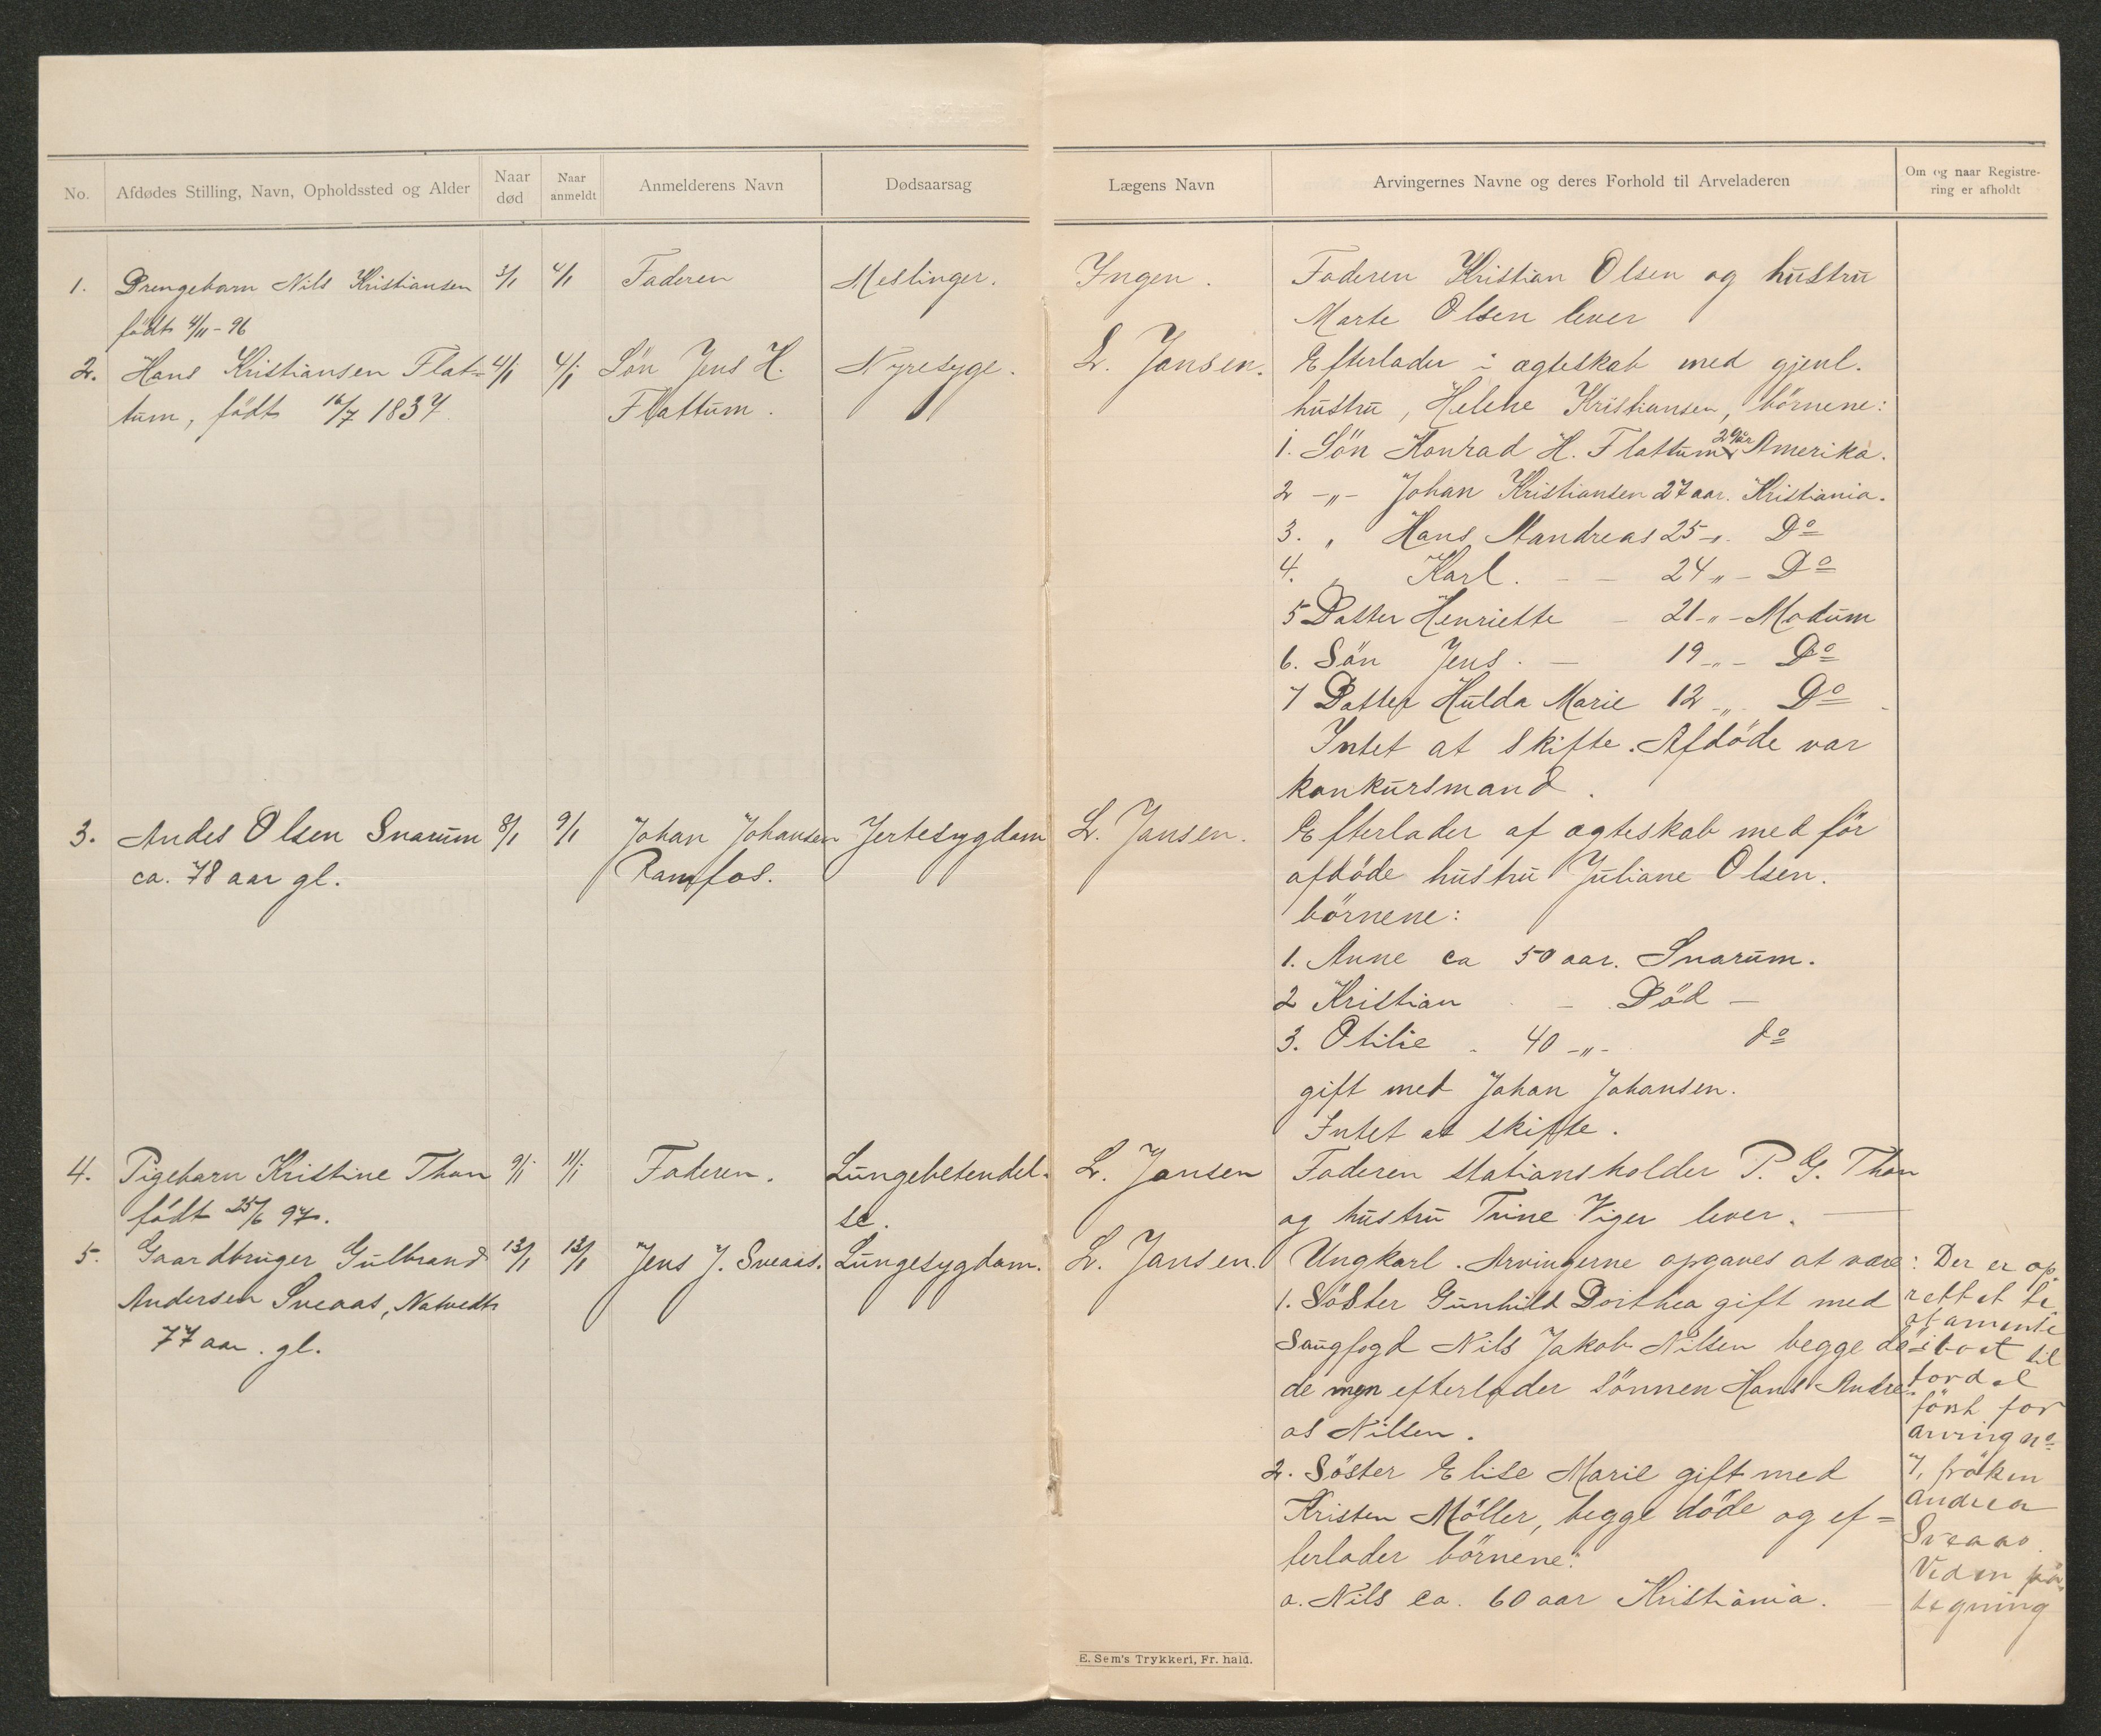 No.
Afdødes Stilling, Navn, Opholdssted og Alder
Naar død
Naar anmeldt
Anmelderens Navn
Dødsaarsag
Lægens Navn
Arvingernes Navne og deres Forhold til Arveladeren
Om og naar Registre-
ring er afholdt
1. Drengebarn Nils Kristiansen 3/1 4/1 Faderen Meslinger. Ingen. Faderen Kristian Olsen og hustru
født 4/11-96 Marte Olsen lever
2. Hans Kristiansen Flat= 4/1 4/1 Søn Jens H. Nyresyge. L. Jansen. Efterlader i ægteskab med gjenl.
tum, født 16/7 1837. Flattum. hustru, Helene Kristiansen, børnene:
1. Søn Konrad H. Flattum 29 år Amerika.
2 -„- Johan Kristiansen 27 aar. Kristiania.
3. „ Hans Mandreas 25 -„. Do
4. „ Karl. - - 24 „ - Do
5 Datter Henriette - 21 -„- Modum
6. Søn Jens. - 19 -„- Do
7 Datter Hulda Marie 12 -„- Do
Intet at skifte. Afdøde var
konkursmand.
3. Andes Olsen Snarum 8/1 9/1 Johan Johansen Jertesygdom L. Jansen. Efterlader af ægteskab med før
ca. 78 aar gl. Ramfos. afdøde hustru Juliane Olsen.
børnene:
1. Anne ca 50 aar. Snarum.
2 Kristian - Död -
3. Otilie . 40 -„- do
gift med Johan Johansen.
Intet at skifte.
4. Pigebarn Kristine Thon 9/1 11/1 Faderen. Lungebetendel- L. Jansen Faderen stationsholder P. G. Thon
født 25/6 97. se. og hustru Trine Viger lever.
5. Gaardbruger Gulbrand 12/1 13/1 Jens J. Sveaas. Lungesygdom. L. Jansen. Ungkarl. Arvingerne opgaves at være:
Andersen Sveaas, Natvedt 1. Søster Gunhild Dorthea gift med
77 aar. gl. Saugfogd Nils Jakob Nilsen begge dö=
de men efterlader sönnen Hans Andre-
as Nilsen.
2. Søster Elise Marie gift med
Kristen Möller, begge döde og ef=
terlader börnene:
a. Nils ca. 60 aar Kristiania.
Der er op-
rettet te
stamente
til
fordel
først for
arving no
7, frøken
Andrea
Sveaas.
Viden på-
tegning
E. Sem's Trykkeri, Fr. hald.